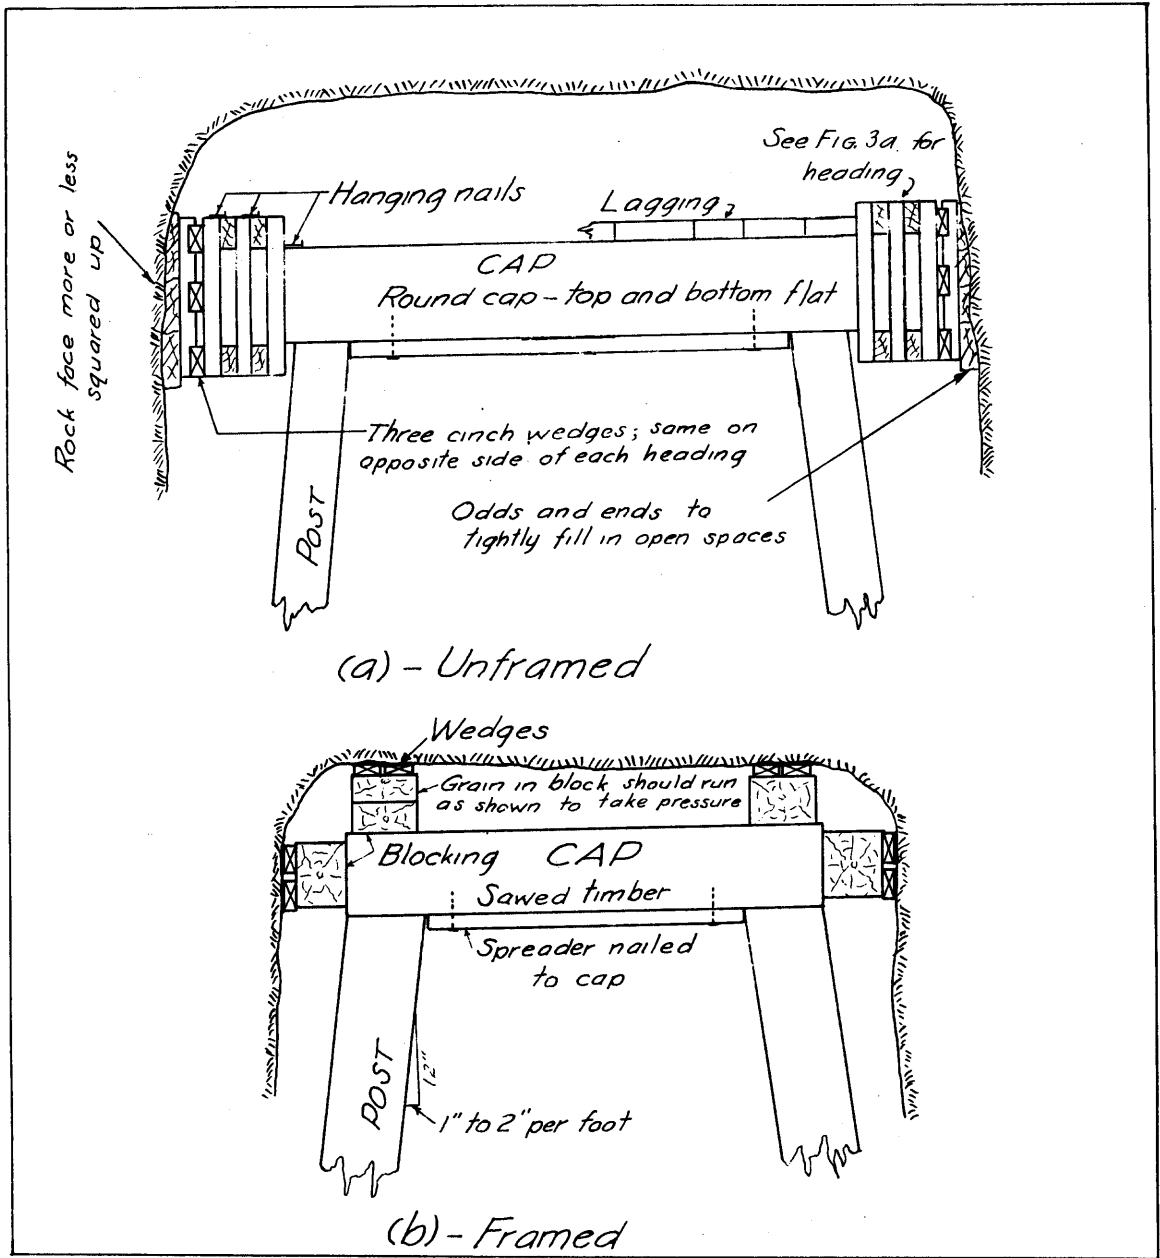 See FIG. 3a. for
heading
Rock face more or less
squared up
Hanging nails
Lagging
CAP
Round cap – top and bottom flat
Three cinch wedges; same on
opposite side of each heading
POST
Odds and ends to
tightly fill in open spaces
(a) – Unframed
Wedges
Grain in block should run
as shown to take pressure
Blocking
CAP
Sawed timber
Spreader nailed
to cap
POST
12"
1" to 2" per foot
(b) – Framed